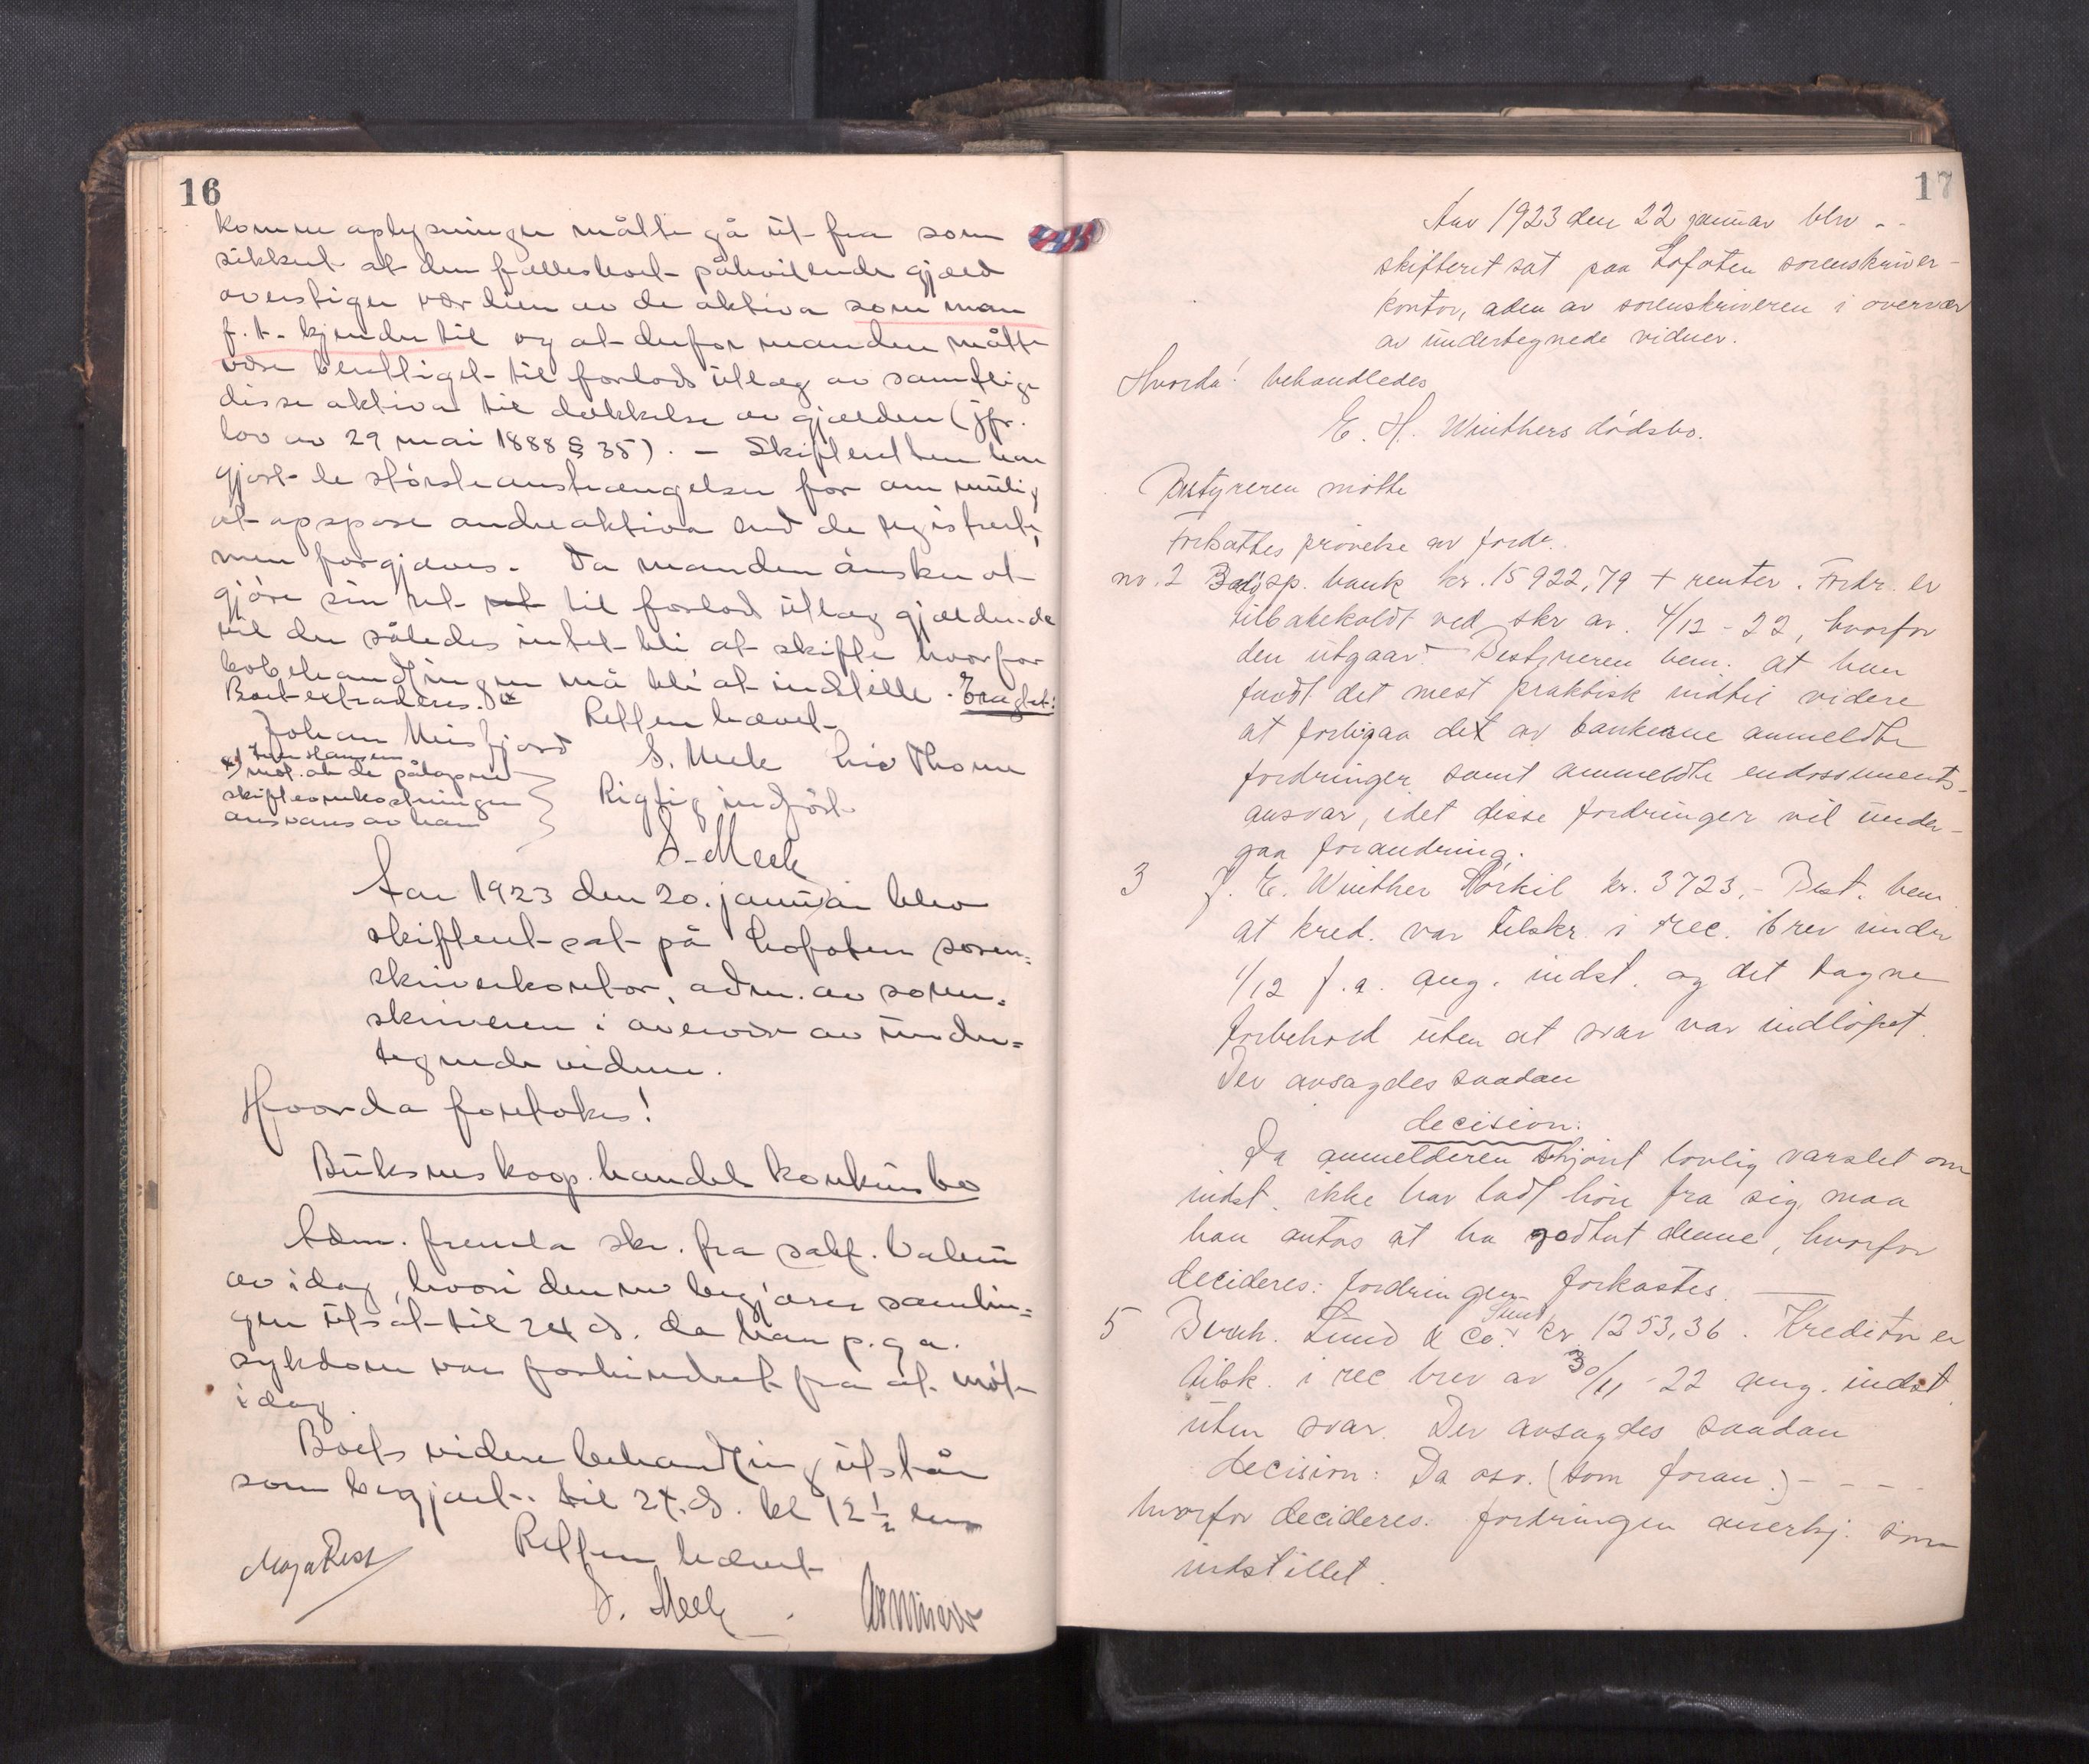 16
komne oplysninger måtte gå ut fra som
sikkert at den fælleshoet påhvilende gjæld
overstiger værdien av de aktiva som man
f.t. kjender til og at derfor manden måtte
være berettiget til forlods utlæg av samtlige
disse aktiva til dækkelse av gjælden (jfr.
lov av 29 mai 1888 § 35). - Skifteretten har
gjort de størsteanstrængelser for om mulig
at opspore andre aktiva end de registrerte,
men forgjæves. Da manden ønsker at
gjøre sin ret til forlod utlæg gjældende
vil der således intet bli at skifte hvorfor
bobehandlingen må bli at indstille. Eragtet:
Boet extraderes. x
Retten hævet
Johan Meisfjord
S. Meek Liv Thome
x) Iver Hansen
mot at de påløpne
skifteomkostninger
ansvares av ham
Rigtig indført
S. Meek
Aar 1923 den 20. januar blev
skifteret sat på Lofoten soren=
skriverkontor, adm. av soren=
skriveren i overvær av under=
tegnede vidner.
Hvorda foretokes!
Buksnes koop. handels konkursbo
Adm. fremla skr. fra sakf.
av idag, hvori denne begjærer samlin=
gen utsat til 24 ds. da han p. g. a.
sykdom var forhindret fra at møte
idag.
Boets videre behandling utstår
som begjært til 24. ds. kl 12 1/2
Retten hævet
S. Meek
17
Aar 1923 den 22 januar blev - -
skifteret sat paa Lofoten sorenskriver-
kontor, adm av sorenskriveren i overvær
av undertegnede vidner.
Hvorda! behandledes
E. H. Winthers dødsbo.
Bestyreren møtte
Fortsattes prøvelse av fordr.
nr. 2 Bodø sp. bank kr. 15922,79 + renter. Fordr. er
tilbakekaldt ved skr av. 4/12 - 22, hvorfor
den utgaar. Bestyreren bem. at han
fandt det mest praktisk indtil videre
at forbigaa det av bankerne anmeldte
fordringer samt anmeldte endossements-
ansvar, idet disse fordringer vil under-
gaa forandring.
3 J. E. Winther Torkil kr. 3723,- Best. bem.
at kred. var tilskr. i rec. brev under
1/12 f. a. ang. indst. og det tagne
forbehold uten at svar var indløpet.
Der avsagdes saadan
decision:
Da anmelderen skjønt lovlig varslet om
indst. ikke har ladt høre fra sig, maa
han antas at ha godtat denne, hvorfor
decideres: fordringen forkastes.
5 Bernh. Lund & Co. Sund kr. 1253,36. Kreditor er
tilsk. i rec brev av 30/11 - 22 ang. indst.
uten svar. Der avsagdes saadan
decision: Da osv. (som foran.) - - - -
hvorfor decideres. fordringen anerkj. som
indstillet.